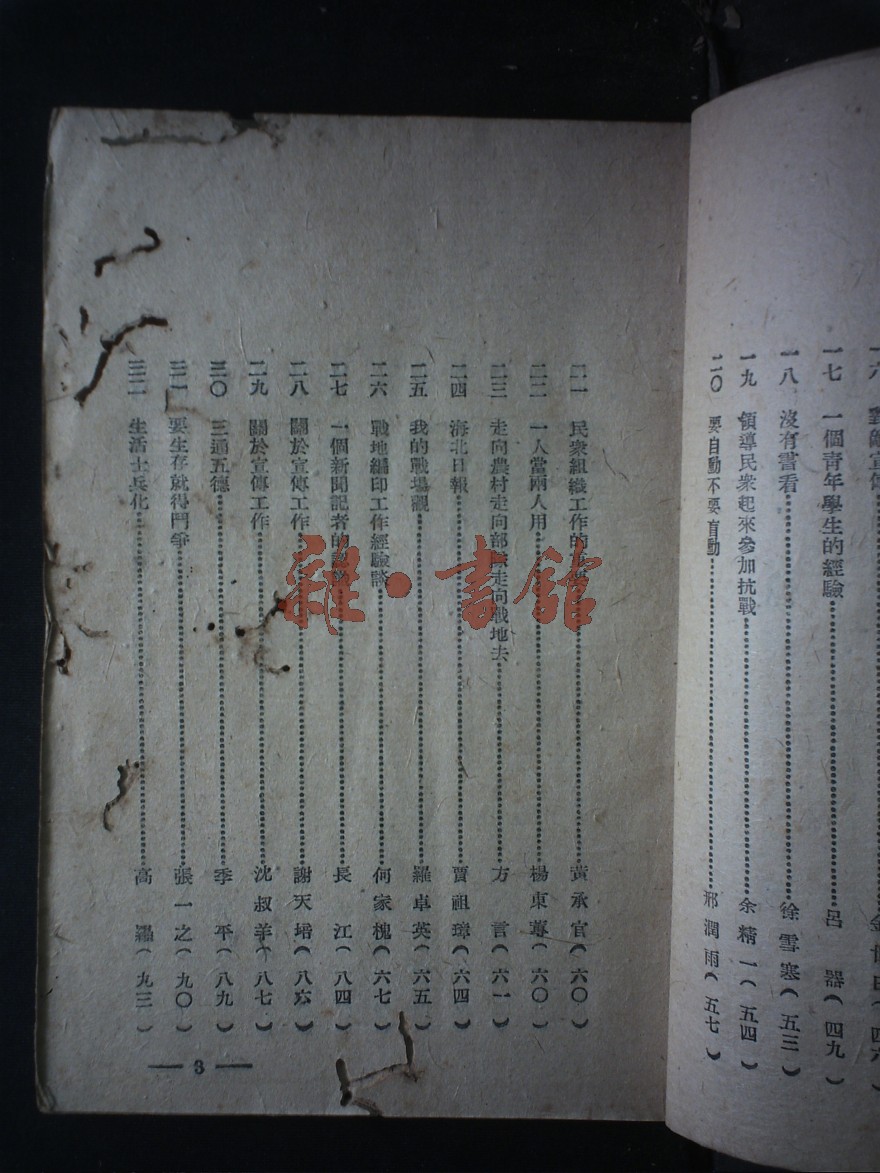 一六 對敵宣傳
一七 一個青年學生的經驗 呂器(四九)
一八 沒有書看 徐雪寒(五三)
一九 領導民衆起來參加抗戰 余精一(五四)
二〇 要自動不要盲動 邢潤雨(五七)
二一 民衆組織工作的 黃承官(六〇)
二二 一人當兩人用 楊東蓴(六〇)
二三 走向農村走向部隊走向戰地去 方言(六一)
二四 海北日報 賈祖璋(六四)
二五 我的戰場觀 羅卓英(六五)
二六 戰地編印工作經驗談 何家槐(六七)
二七 一個新聞記者的 長江(八四)
二八 關於宣傳工作 謝天培(八六)
二九 關於宣傳工作 沈叔羊(八七)
三〇 三通五德 季平(八九)
三一 要生存就得鬥爭 張一之(九〇)
三二 生活士兵化 高(九三)
— 3 —
雜·書館